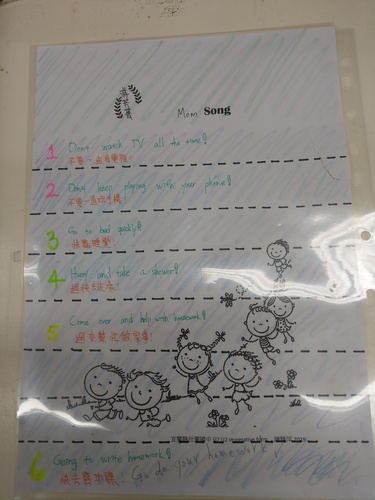 Mom Song
1 Don't watch TV all the time!
不要一直看電視!
2 Don't keep playing with your phone!
不要一直玩手機
3 Go to bed quickly!
快點睡覺!
4 Hurry and take a shower!
趕快洗澡!
5 Come over and help with homework!
過來幫忙做家事!
6 Going to write homework!
快去寫功課! Go do your homework